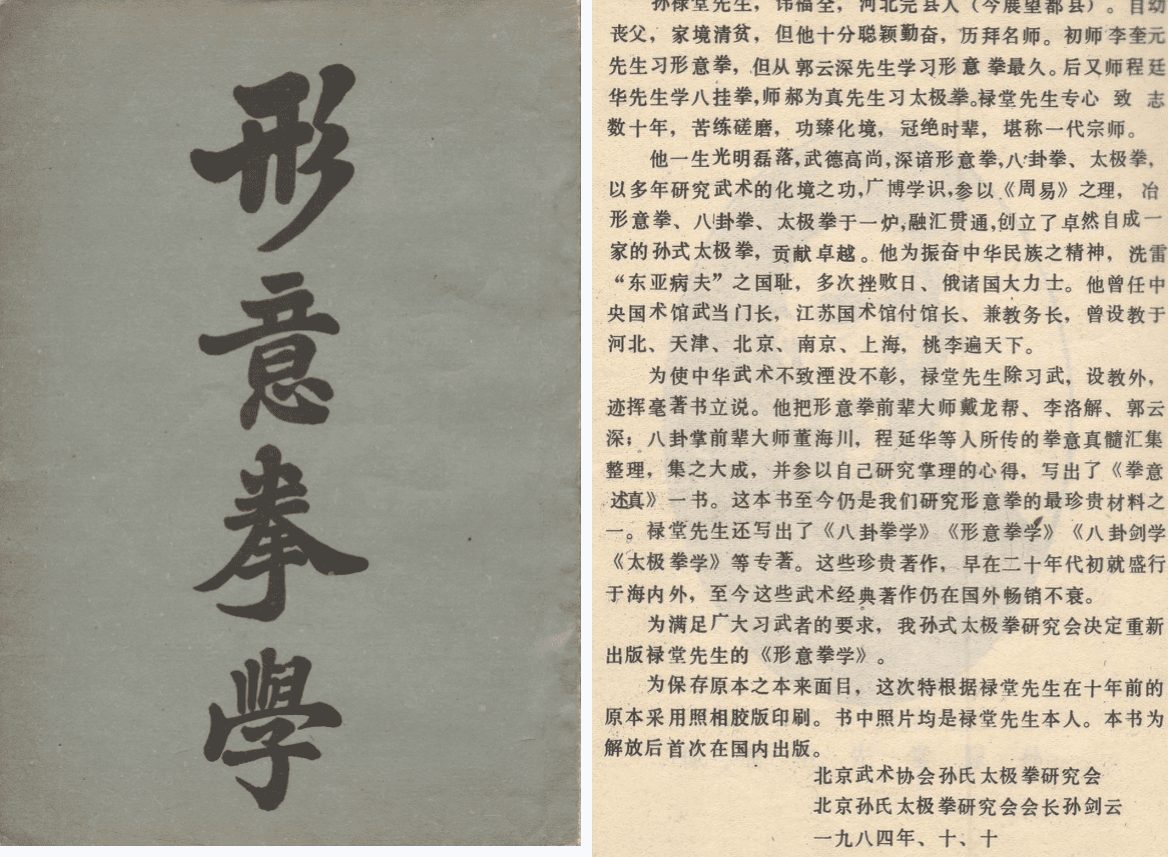 形意拳學
孙禄堂先生，讳福全，河北完县人（今展望都县）。自幼
丧父，家境清贫，但他十分聪颖勤奋，历拜名师。初师李奎元
先生习形意拳，但从郭云深先生学习形意拳最久。后又师程廷
华先生学八挂拳，师郝为真先生习太极拳。禄堂先生专心致志
数十年，苦练磋磨，功臻化境，冠绝时辈，堪称一代宗师。
他一生光明磊落，武德高尚，深谙形意拳，八卦拳、太极拳，
以多年研究武术的化境之功，广博学识，参以《周易》之理，冶
形意拳、八卦拳、太极拳于一炉，融汇贯通，创立了卓然自成一
家的孙式太极拳，贡献卓越。他为振奋中华民族之精神，洗雷
“东亚病夫”之国耻，多次挫败日、俄诸国大力士。他曾任中
央国术馆武当门长，江苏国术馆付馆长、兼教务长，曾设教于
河北、天津、北京、南京、上海，桃李遍天下。
为使中华武术不致湮没不彰，禄堂先生除习武，设教外，
迹挥毫著书立说。他把形意拳前辈大师戴龙帮、李洛解、郭云
深；八卦掌前辈大师董海川，程延华等人所传的拳意真髓汇集
整理，集之大成，并参以自己研究掌理的心得，写出了《拳意
述真》一书。这本书至今仍是我们研究形意拳的最珍贵材料之
一。禄堂先生还写出了《八卦拳学》《形意拳学》《八卦剑学
《太极拳学》等专著。这些珍贵著作，早在二十年代初就盛行
于海内外，至今这些武术经典著作仍在国外畅销不衰。
为满足广大习武者的要求，我孙式太极拳研究会决定重新
出版禄堂先生的《形意拳学》。
为保存原本之本来面目，这次特根据禄堂先生在十年前的
原本采用照相胶版印刷。书中照片均是禄堂先生本人。本书为
解放后首次在国内出版。
北京武术协会孙氏太极拳研究会
北京孙氏太极拳研究会会长孙剑云
一九八四年、十、十